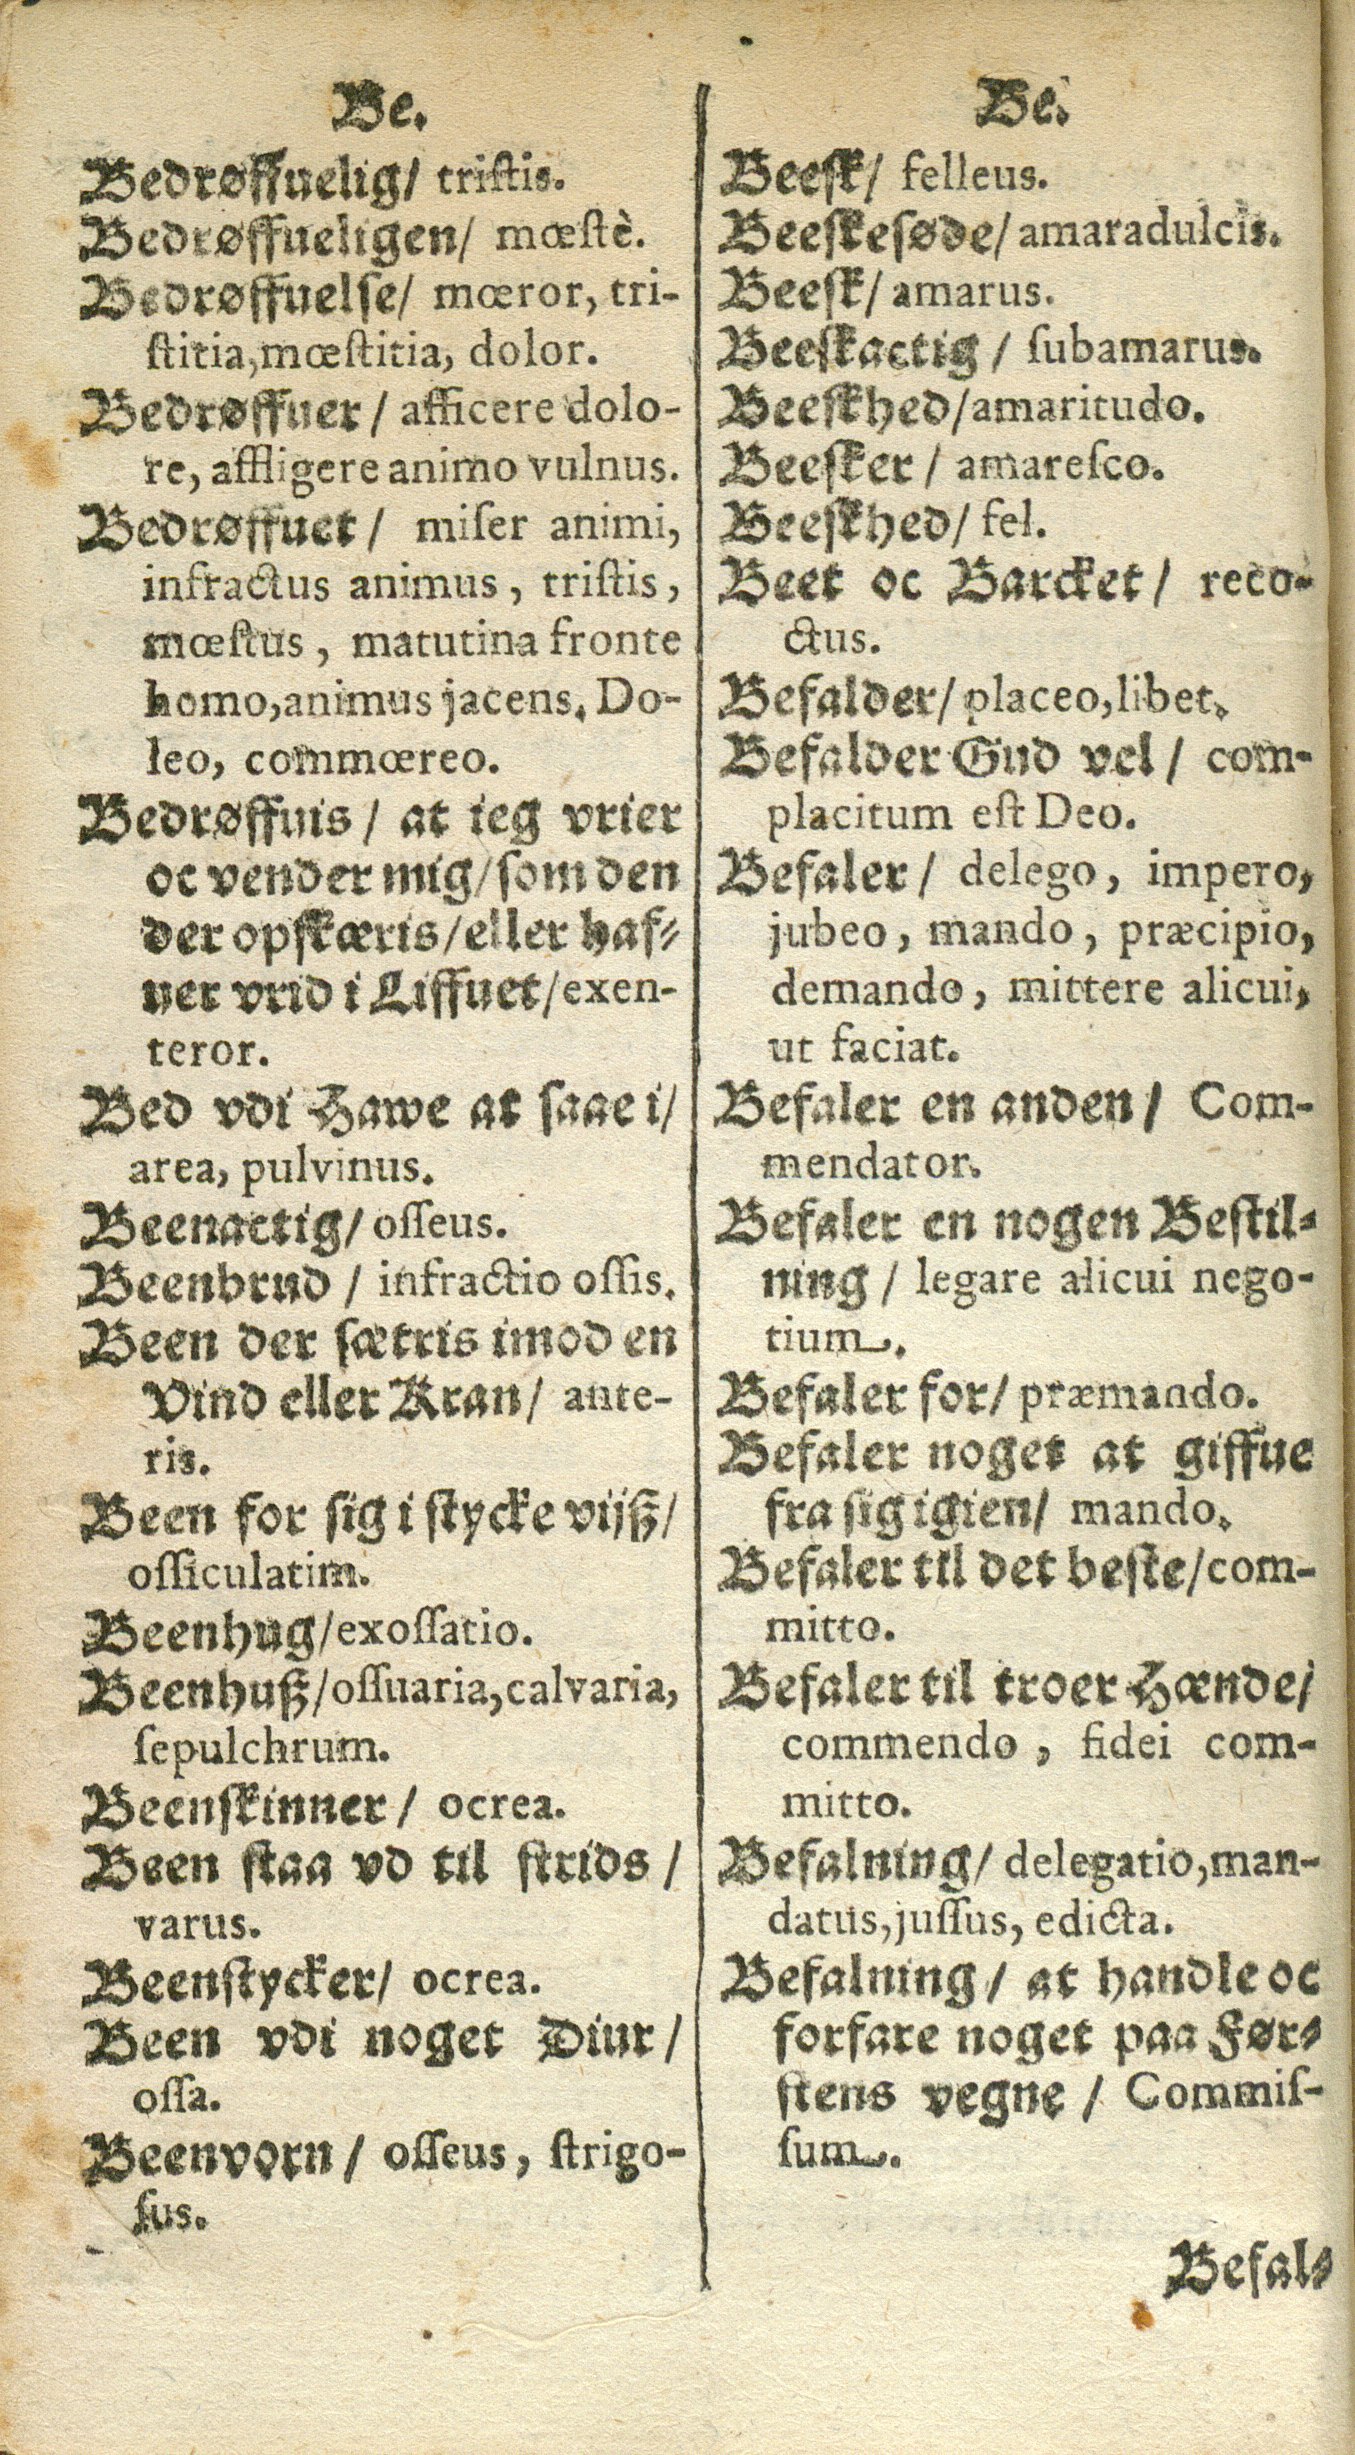 Be.
Bedrøffuelig/ triſtis.
Bedrøffueligen/ mœſtè.
Bedrøffuelſe/ mœror, tri-
ſtitia, mœſtitia, dolor.
Bedrøffuer/ afficere dolo-
re, affligere animo vulnus.
Bedrøffuet/ miſer animi,
infractus animus, triſtis,
mœſtus, matutina fronte
homo, animus jacens. Do-
leo, commœreo.
Bedrøffuis/ at ieg vrier
oc vender mig/ ſom den
der opſkæris/ eller haf-
uer vrid i Liffuet/ exen-
teror.
Bed vdi Hawe at ſaae i/
area, pulvinus.
Beenactig/ oſſeus.
Beenbrud/ infractio oſſis.
Been der ſætris imod en
Vind eller Kran/ ante-
ris.
Been for ſig i ſtycke vijß/
oſſiculatim.
Beenhug/ exoſſatio.
Beenhuß/ oſſuaria, calvaria,
ſepulchrum.
Beenſkinner/ ocrea.
Been ſtaa vd til ſtrids/
varus.
Beenſtycker/ ocrea.
Been vdi noget Diur/
oſſa.
Beenvorn/ oſſeus, ſtrigo-
ſus.
Be.
Beeſk/ felleus.
Beeſkeſøde/ amaradulcis.
Beeſk/ amarus.
Beeſkactig/ ſubamarus.
Beeſkhed/ amaritudo.
Beeſker/ amareſco.
Beeſkhed/ fel.
Beet oc Barcket/ reco-
ctus.
Befalder/ placeo, libet.
Befalder Gud vel/ com-
placitum eſt Deo.
Befaler/ delego, impero,
jubeo, mando, præcipio,
demando, mittere alicui,
ut faciat.
Befaler en anden/ Com-
mendator.
Befaler en nogen Beſtil-
ning/ legare alicui nego-
tium.
Befaler for/ præmando.
Befaler noget at giffue
fra ſig igien/ mando.
Befaler til det beſte/ com-
mitto.
Befaler til troer Hænde/
commendo, fidei com-
mitto.
Befalning/ delegatio, man-
datus, juſſus, edicta.
Befalning/ at handle oc
forfare noget paa Før-
ſtens vegne/ Commiſ-
ſum.
Befal-